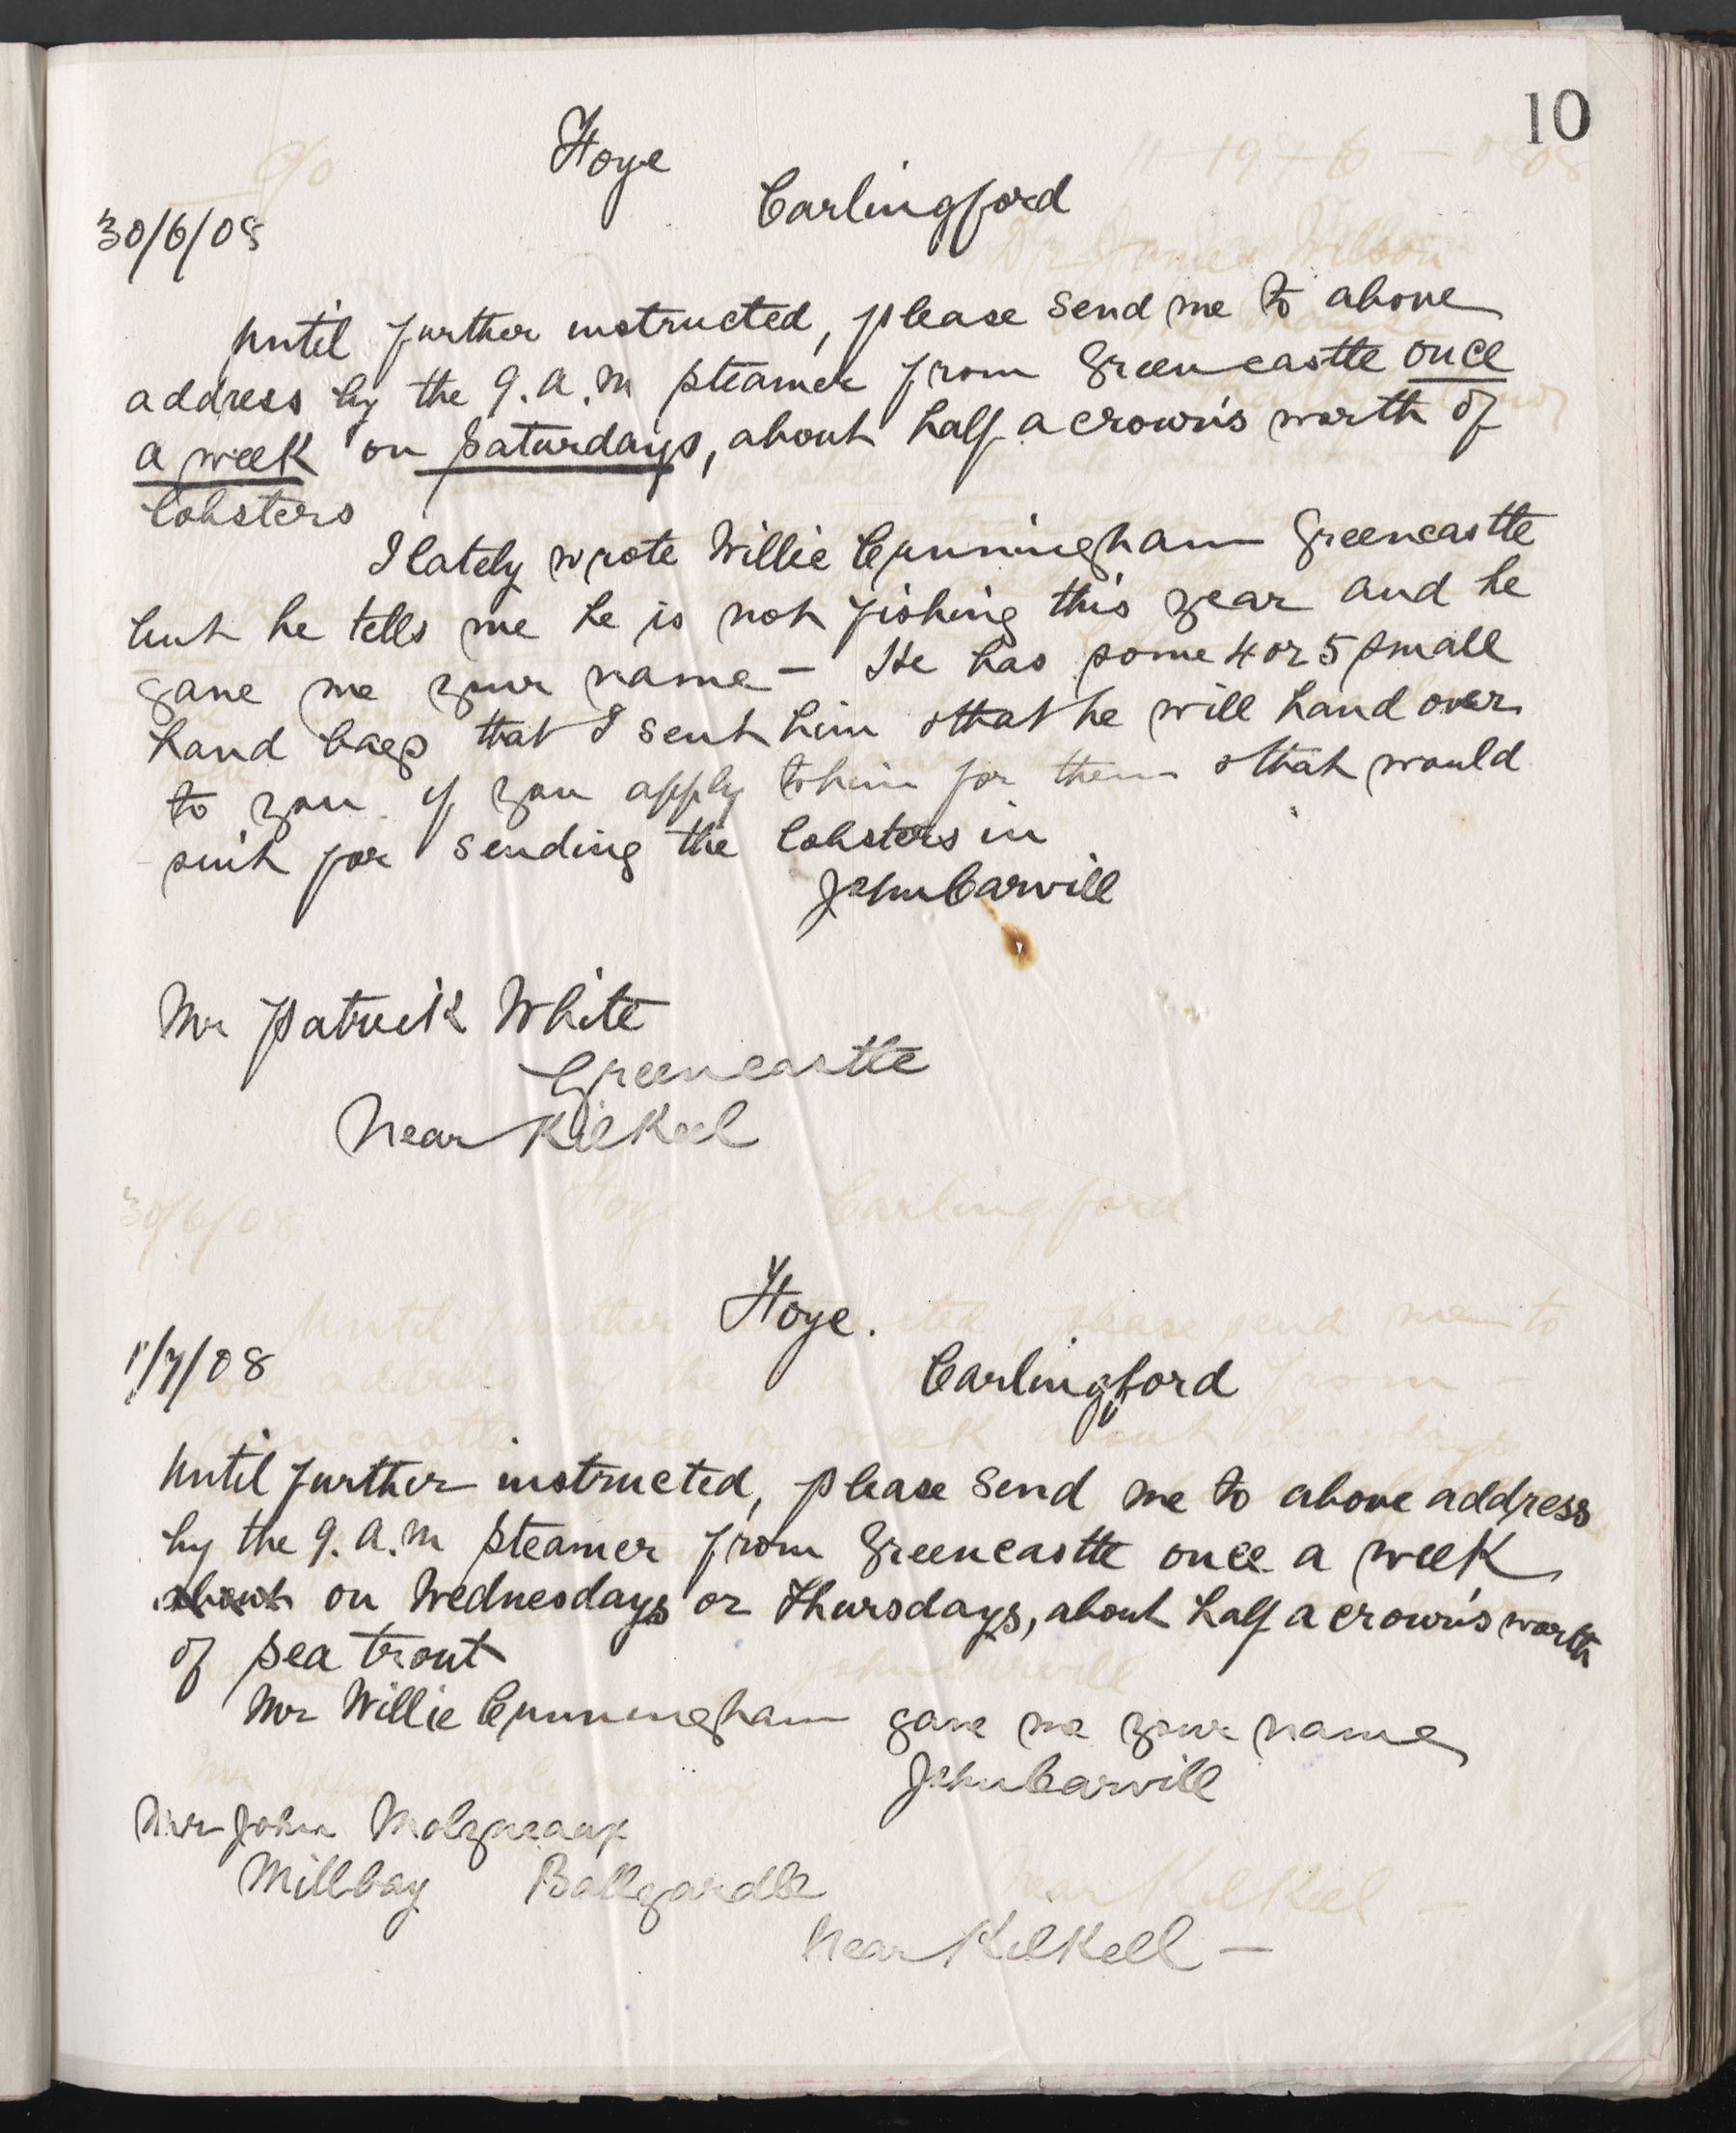 10
Hoye
Carlingford
30/6/08
Until further instructed, please send me to above
address by the 9.a.m steamer from Greencastle once
a week on Saturdays, about half a crown's worth of
lobsters
I lately wrote Willie Cunningham Greencastle
but he tells me he is not fishing this year and he
gave me your name - He has some 4 or 5 small
hand bags that I sent him & that he will hand over
to you if you apply to him for them & that would
suit for sending the lobsters in
John Carvill
Mr Patrick White
Greencastle
Near Kilkeel
Hoye.
Carlingford
1/7/08
Until further instructed, please send me to above address
by the 9.a.m steamer from Greencastle once a week
about on Wednesdays or Thursdays, about half a crown's worth
of sea trout
Mr Willie Cunningham gave me your name
John Carvill
Mr John Molyneaux
Millbay Ballyardle
Near Kilkeel -